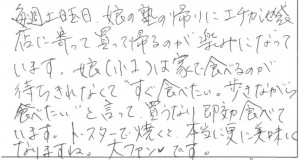 毎週土日曜日、娘の塾の帰りにエチカ池袋
店に寄って買って帰るのが楽しみになって
います。娘(小工)は家で食べるのが
待ちきれなくて"すぐ食べたい。歩きながら
食べたい"と言って、買うなり即効食べて
います。トースターで焼くと、本当に更に美味しく
なりますね。大ファン♥です。